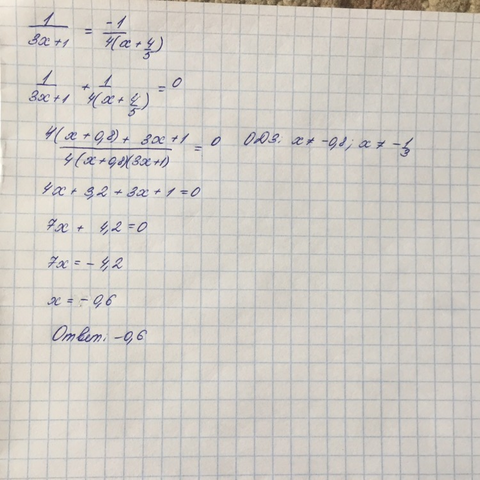 1/(3x+1) = -1/(4(x+4/5))
1/(3x+1) + 1/(4(x+4/5)) = 0
(4(x+0,8) + 3x+1)/(4(x+0,8)(3x+1)) = 0 ОДЗ: x ≠ -0,8; x ≠ -1/3
4x + 3,2 + 3x + 1 = 0
7x + 4,2 = 0
7x = -4,2
x = -0,6
Ответ: -0,6